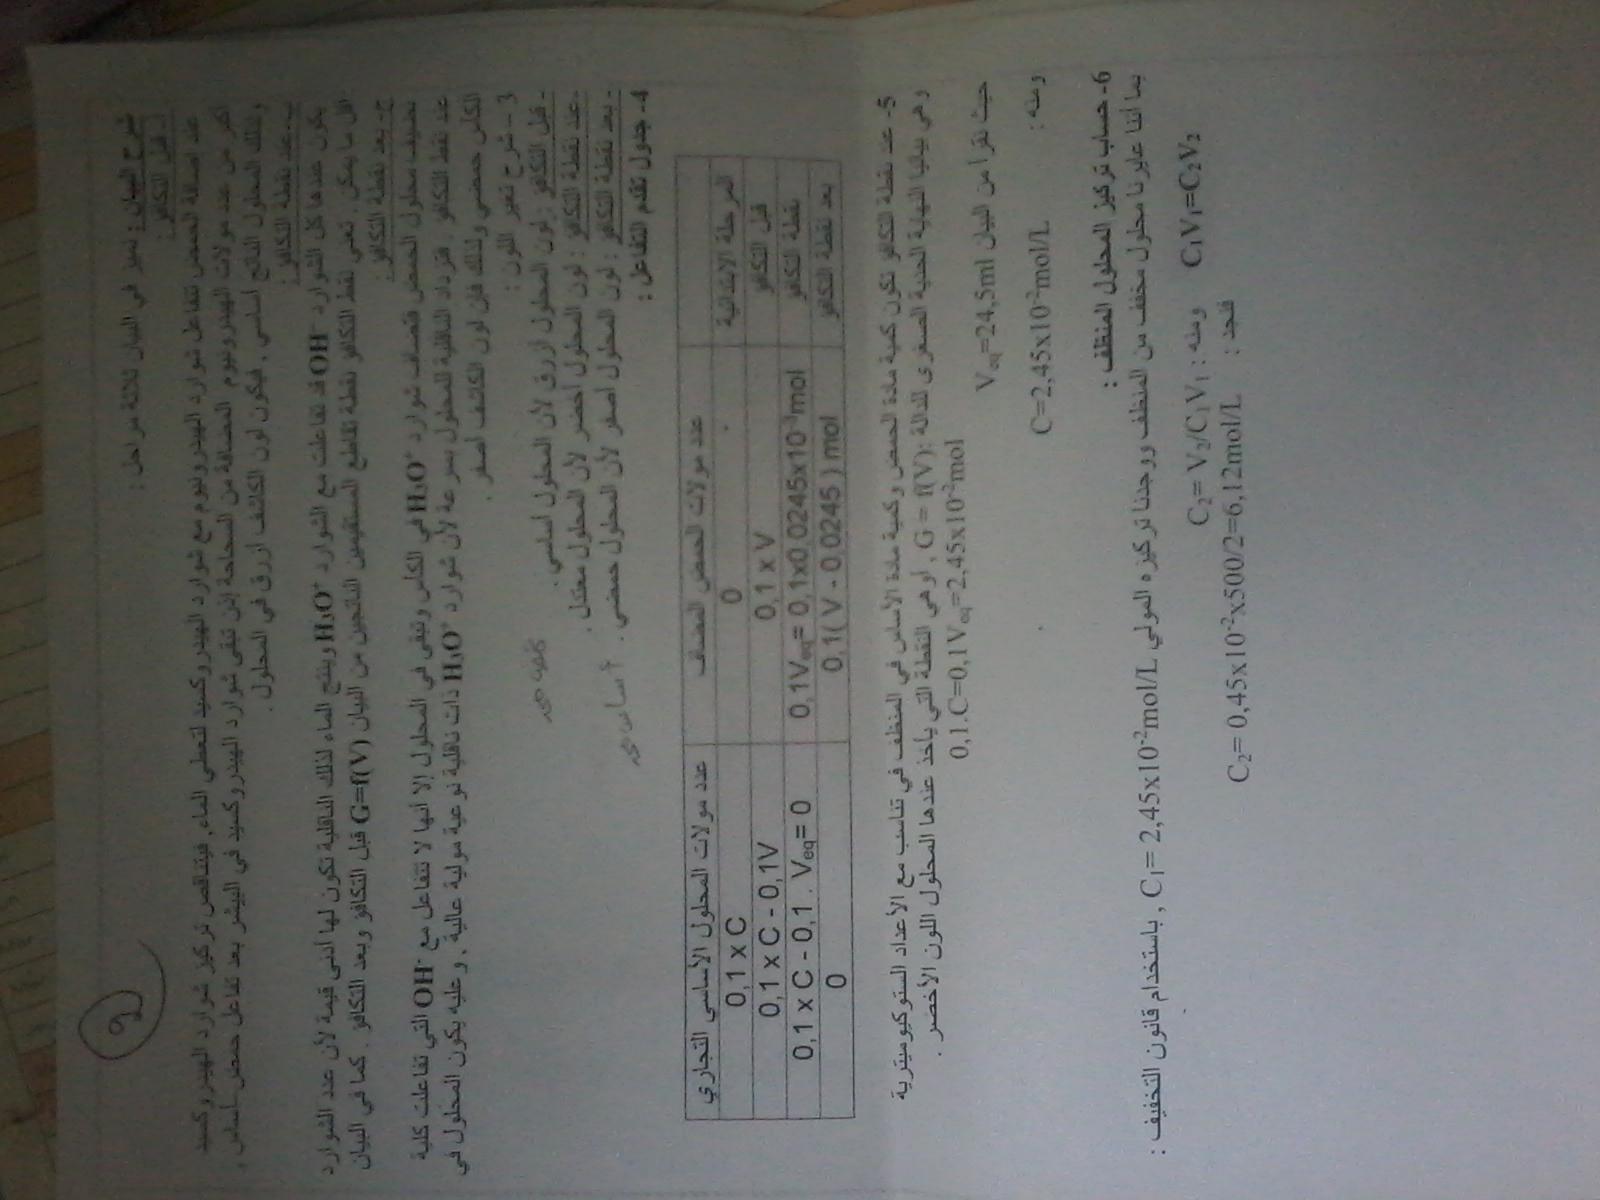 2
شرح البيان : نميز في البيان ثلاثة مراحل :
أ - قبل التكافؤ :
عند اضافة الحمض تتفاعل شوارد الهيدرونيوم مع شوارد الهيدروكسيد لتعطي الماء, فيتناقص تركيز شوارد الهيدروكسيد
أكبر من عدد مولات الهيدرونيوم المضافة من السحاحة إذن تبقى شوارد الهيدروكسيد في البيشر بعد تفاعل حمض - أساس ,
وبذلك المحلول الناتج أساسي , فيكون لون الكاشف أزرق في المحلول .
ب - عند نقطة التكافؤ :
يكون عندها كل الشوارد OH⁻ قد تفاعلت مع الشوارد H₃O⁺ وينتج الماء لذلك الناقلية تكون لها أدنى قيمة لأن عدد الشوارد
أقل ما يمكن . تعني نقط التكافؤ نقطة تقاطع المستقيمين الناتجين من البيان G=f(V) قبل التكافؤ وبعد التكافؤ . كما في البيان
ج - بعد نقطة التكافؤ :
نضيف محلول الحمض فتضاف شوارد H₃O⁺ في الكأس وتبقى في المحلول إلا أنها لا تتفاعل مع OH⁻ التي تفاعلت كلية
عند نقط التكافؤ . فتزداد الناقلية للمحلول بسرعة لأن شوارد H₃O⁺ ذات ناقلية نوعية مولية عالية , و عليه يكون المحلول في
الكأس حمضي ولذلك فإن لون الكاشف أصفر .
3 - شرح تغير اللون :
- قبل التكافؤ : لون المحلول أزرق لأن المحلول أساسي .
- عند نقطة التكافؤ : لون المحلول أخضر لأن المحلول معتدل .
- بعد نقطة التكافؤ : لون المحلول أصفر لأن المحلول حمضي .
4- جدول تقدم التفاعل :
عدد مولات الحمض المضاف عدد مولات المحلول الأساسي التجاري
المرحلة الابتدائية 0 0,1 x C
قبل التكافؤ 0,1 x V 0,1 x C - 0,1V
نقطة التكافؤ 0,1Veq= 0,1x0,0245x10⁻³mol 0,1 x C - 0,1 . Veq= 0
بعد نقطة التكافؤ 0,1( V - 0,0245 ) mol 0
5- عند نقطة التكافؤ تكون كمية مادة الحمض وكمية مادة الأساس في المنظف في تناسب مع الأعداد الستوكيومترية
وهي بيانيا النهاية الحدية الصغرى للدالة : G = f(V) , أو هي النقطة التي يأخذ عندها المحلول اللون الأخضر .
0,1.C=0,1Veq=2,45x10⁻²mol
حيث نقرأ من البيان Veq=24,5ml
ومنه : C=2,45x10⁻²mol/L
6- حساب تركيز المحلول المنظف :
بما أننا عايرنا محلول مخفف من المنظف ووجدنا تركيزه المولي C₁= 2,45x10⁻²mol/L , باستخدام قانون التخفيف :
C₁V₁=C₂V₂ ومنه : C₂= V₂/C₁V₁
فنجد : C₂= 0,45x10⁻²x500/2=6,12mol/L